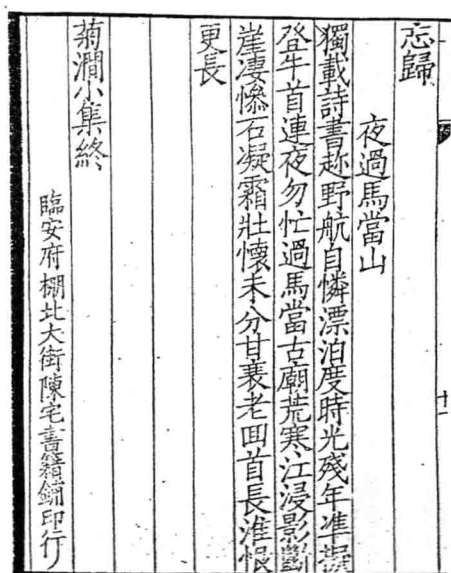 忘歸
夜過馬當山
獨載詩書趂野航自憐漂泊度時光殘年準擬
登牛首連夜勿忙過馬當古廟荒寒江浸影斷
崖凄慘石凝霜壯懷未分甘衰老囬首長淮恨
更長
菊澗小集終
臨安府棚北大街陳宅書籍鋪印行
十一